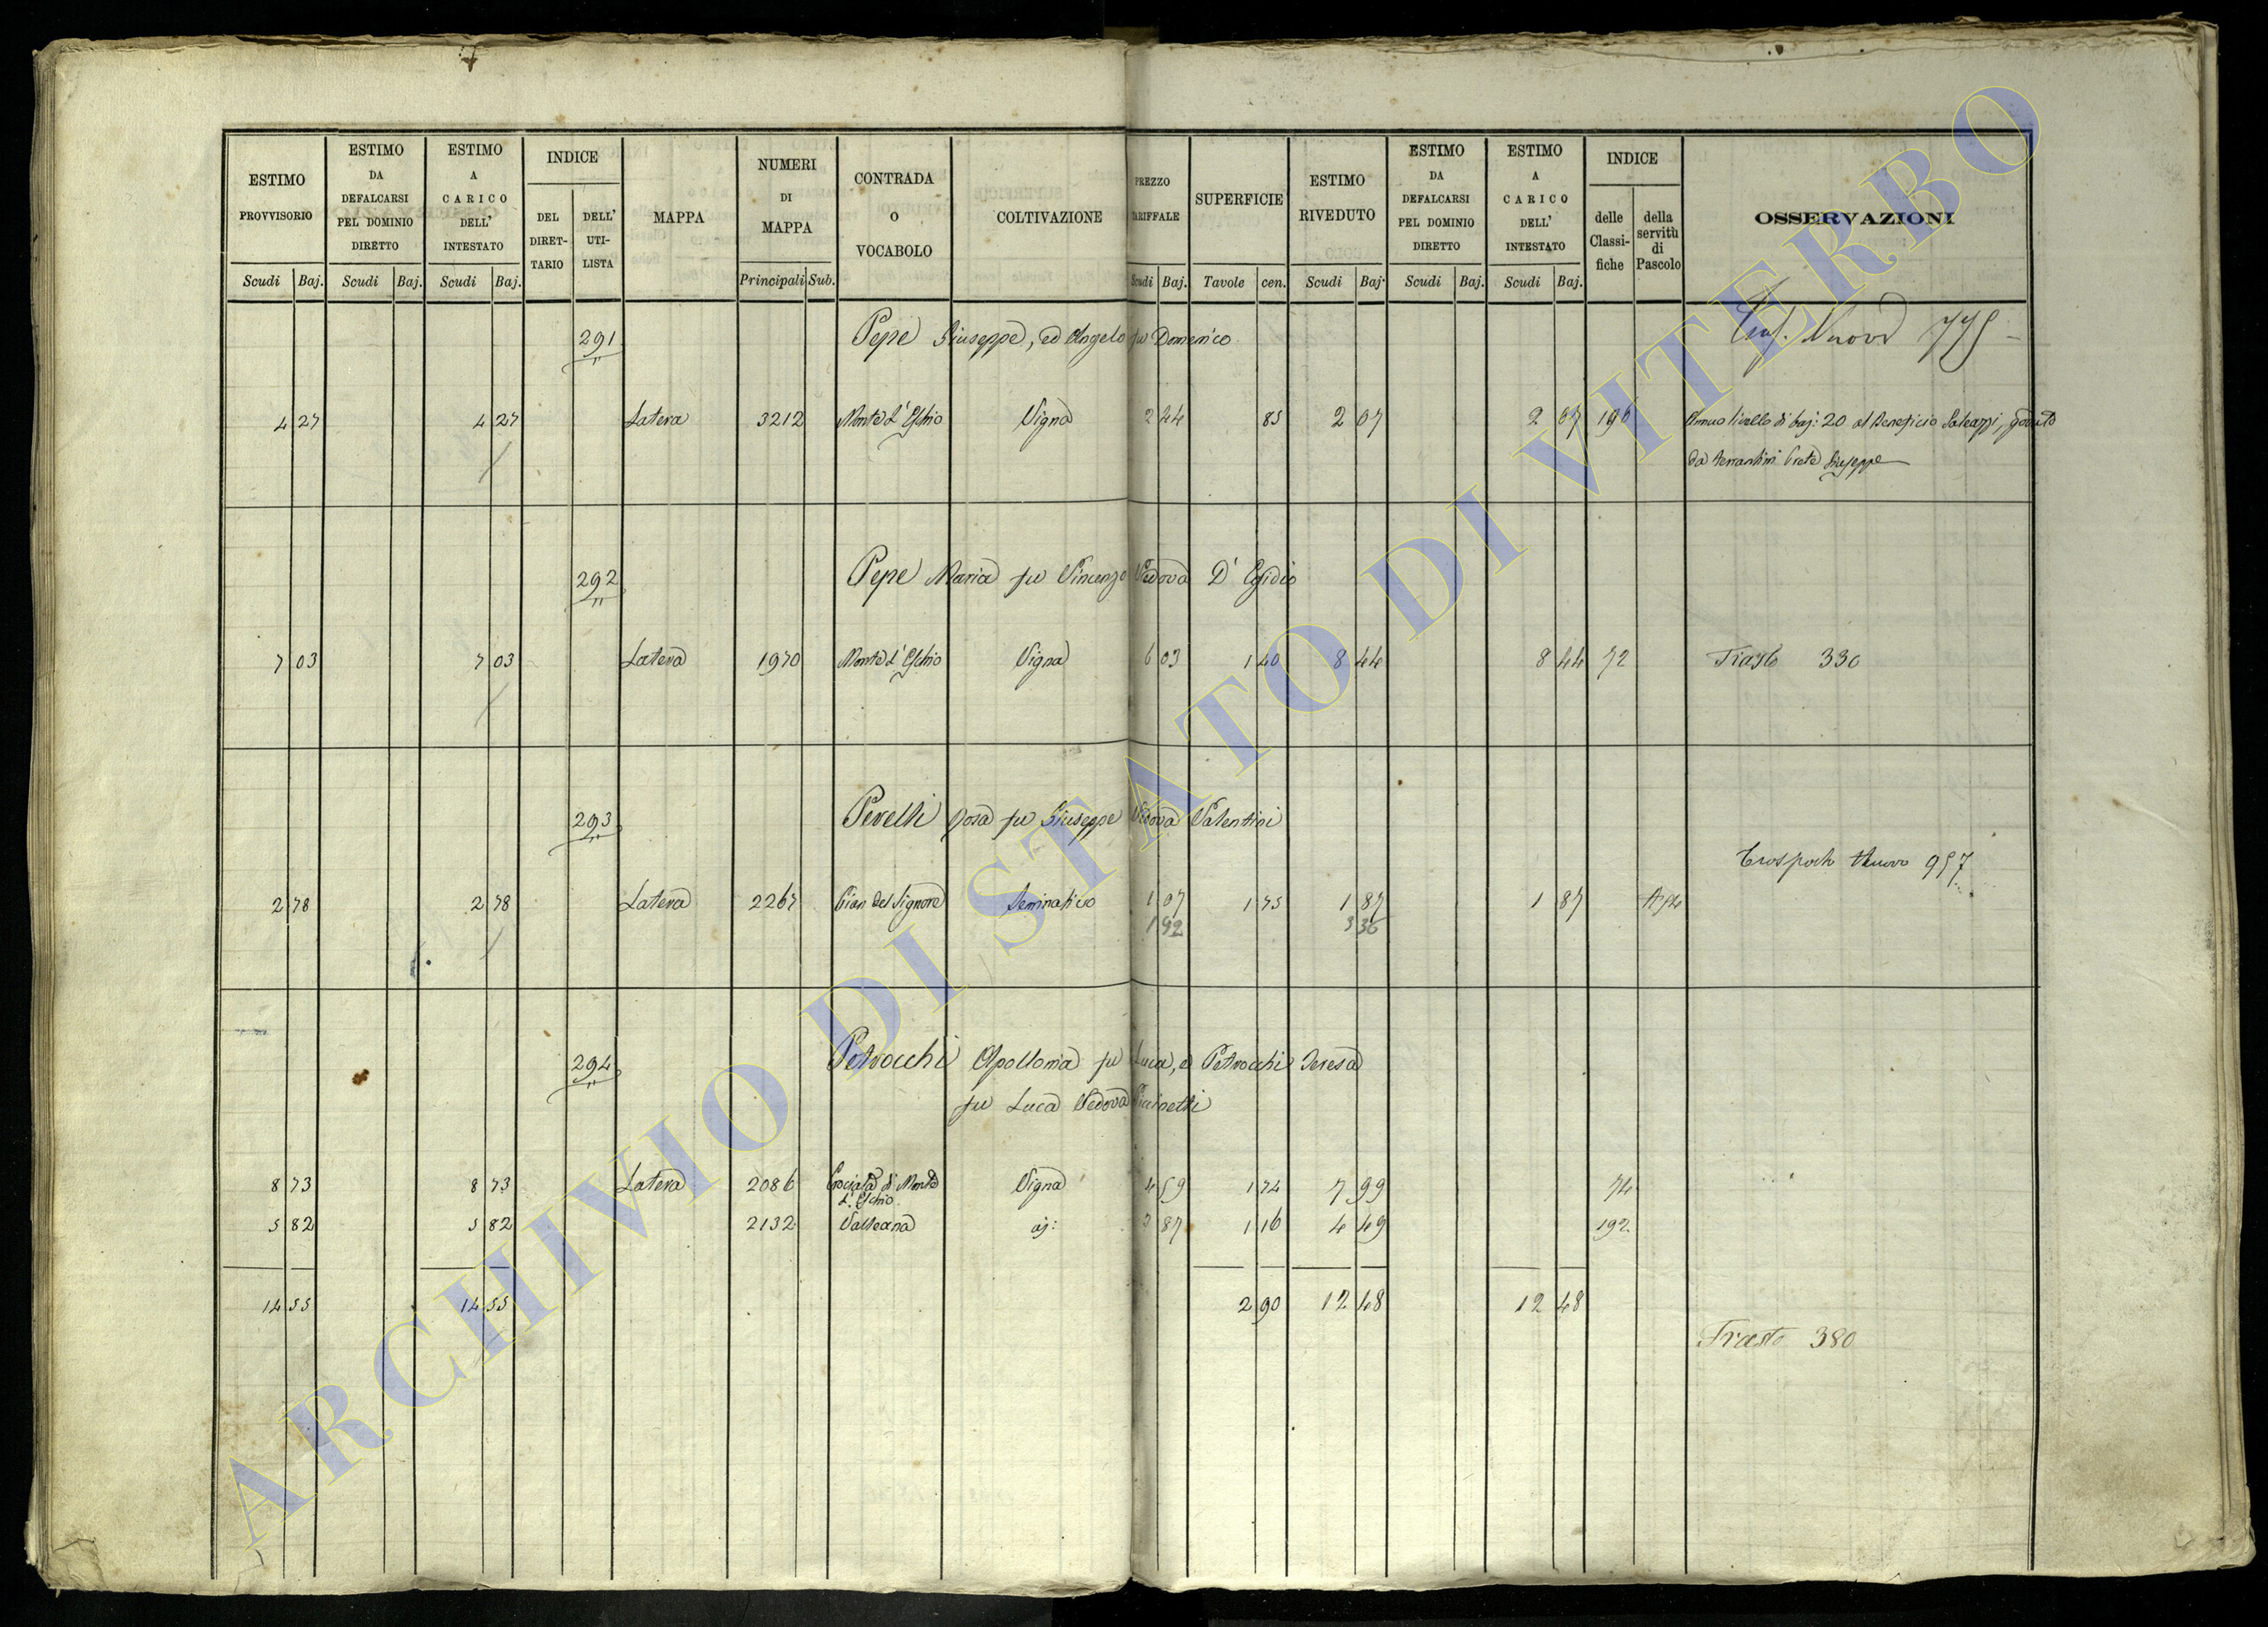 ESTIMO PROVVISORIO ESTIMO DA DEFALCARSI PEL DOMINIO DIRETTO ESTIMO A CARICO DELL' INTESTATO INDICE DEL DIRET- TARIO DELL' UTI- LISTA MAPPA NUMERI DI MAPPA CONTRADA O VOCABOLO COLTIVAZIONE PREZZO TARIFFALE SUPERFICIE ESTIMO RIVEDUTO ESTIMO DA DEFALCARSI PEL DOMINIO DIRETTO ESTIMO A CARICO DELL' INTESTATO INDICE delle Classi- fiche della servitù di Pascolo OSSERVAZIONI
Scudi Baj. Scudi Baj. Scudi Baj. Principali Sub. Scudi Baj. Tavole cen. Scudi Baj. Scudi Baj. Scudi Baj.
291 Pepe Giuseppe, ed Angelo fu Domenico Nuovo 775
4 27 4 27 Latera 3212 Monte L'Eschio Vigna 2 44 85 2 07 2 07 190 Annuo livello di baj: 20 al Beneficio
da Prete Giuseppe
292 Pepe Maria fu Vincenzo Vedova D'Egidio
7 03 7 03 Latera 1970 Monte L'Eschio Vigna 6 03 1 40 8 44 8 44 72 330
293 Perelli Rosa fu Giuseppe Vedova Valentini
Nuovo 957
2 78 2 78 Latera 2267 Pian del Signore Seminativo 1 07 1 75 1 87 1 87
1 92 3 36
294 Petrocchi Apollonia fu Luca, e Petrocchi Teresa
fu Luca Vedova
8 73 8 73 Latera 2086 Crociata di Monte L'Eschio Vigna 4 59 1 74 7 99 74
5 82 5 82 2132 Valleana 3 87 1 16 4 49 192
14 55 14 55 2 90 12 48 12 48
380
ARCHIVIO DI STATO DI VITERBO